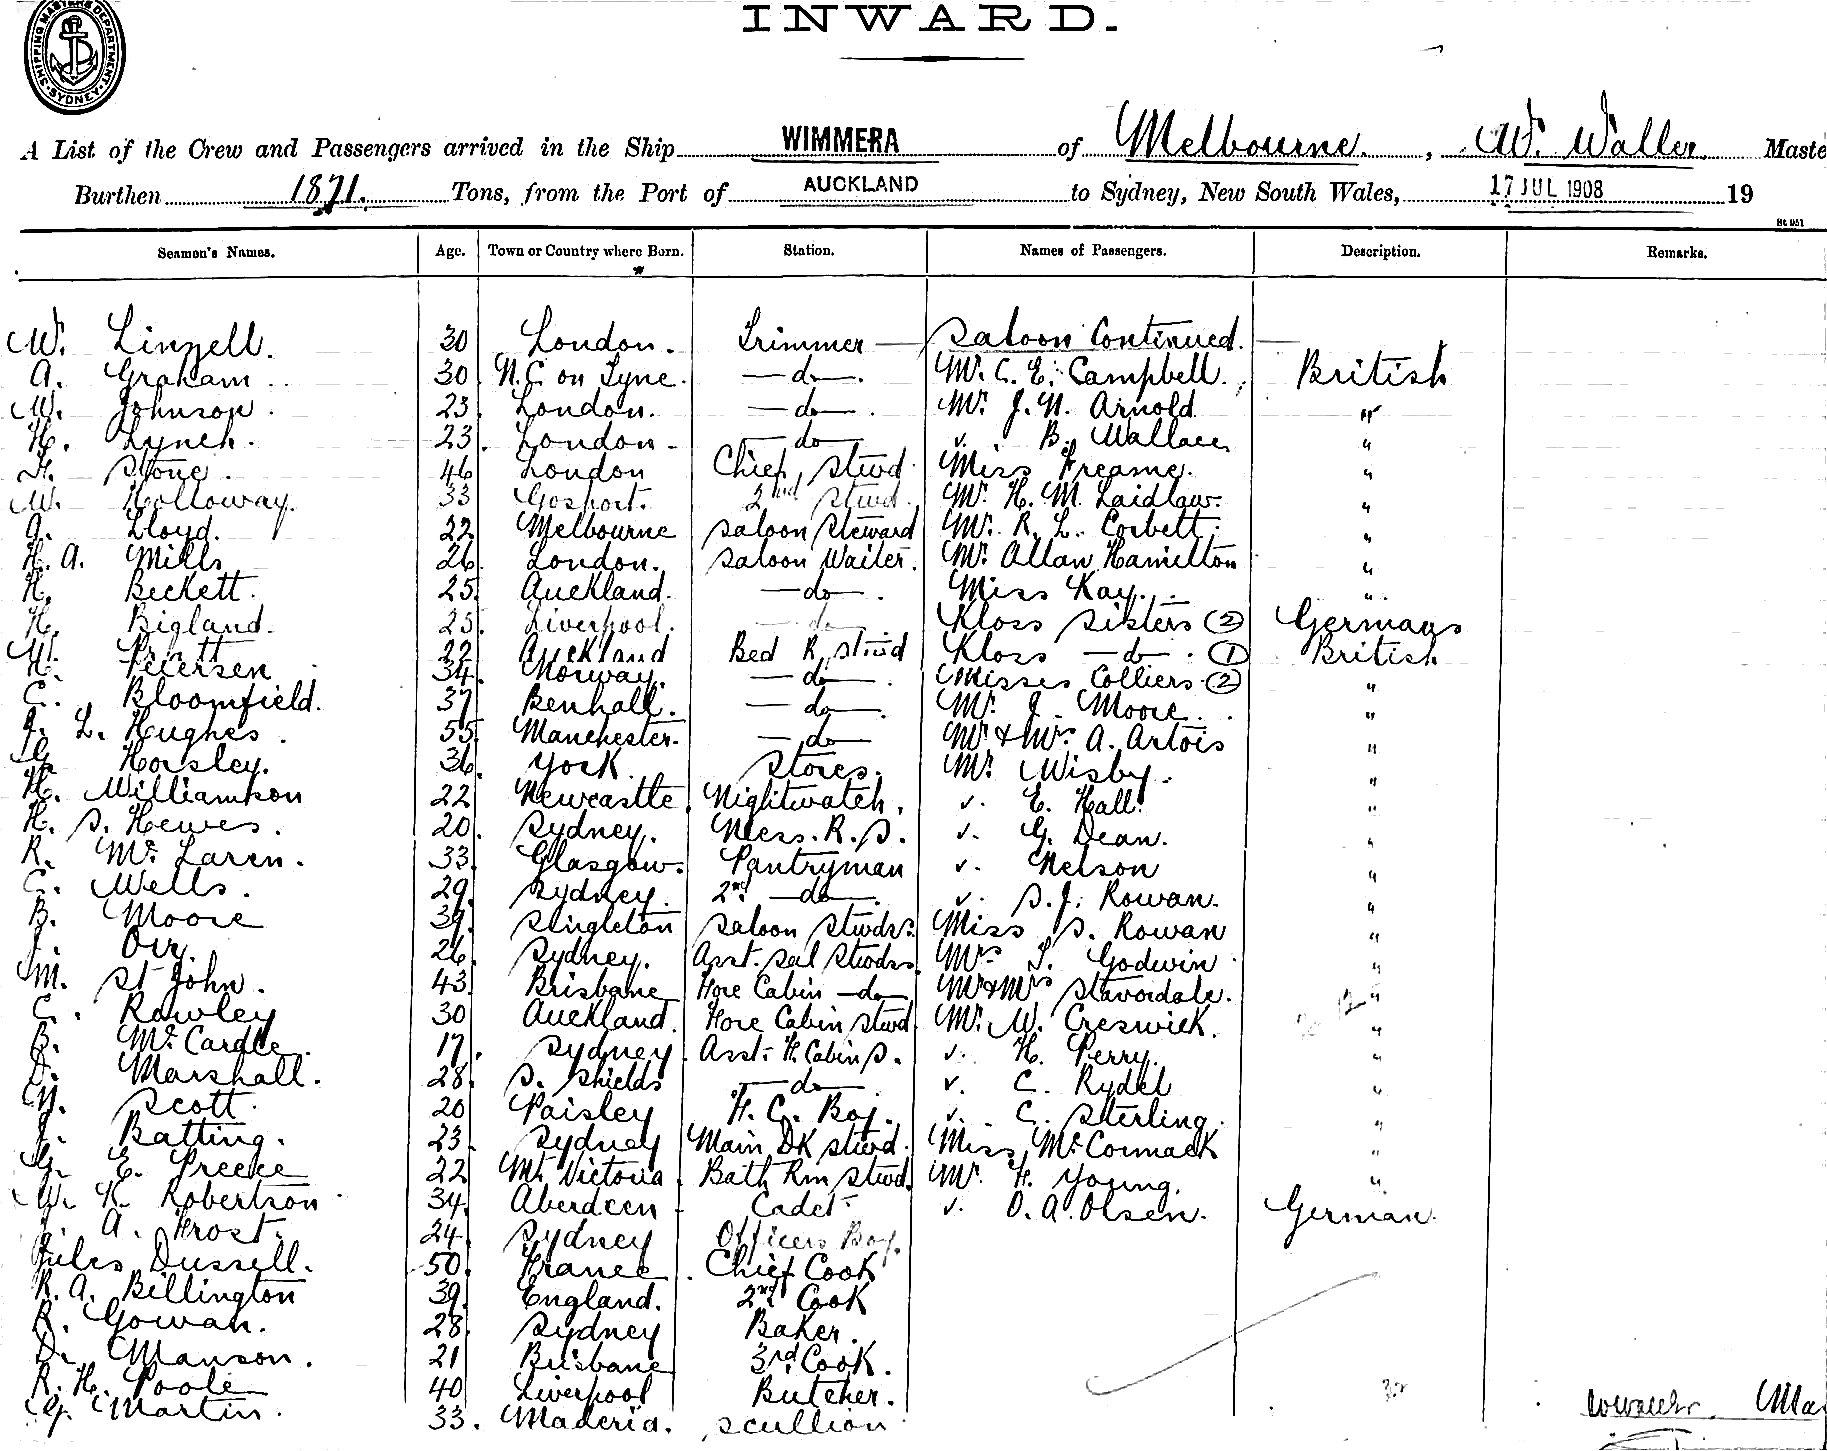 INWARD.
SHIPPING MASTERS DEPARTMENT SYDNEY
A List of the Crew and Passengers arrived in the Ship WIMMERA of Melbourne, W. Waller Maste
Burthen 1871. Tons, from the Port of AUCKLAND to Sydney, New South Wales, 17 JUL 1908 19
Seamen's Names. Age. Town or Country where Born. Station. Names of Passengers. Description. Remarks.
W. Linzell. 30 London. Trimmer Saloon Continued.
A. Graham 30 N.C. on Tyne. — do —. Mr. C. E. Campbell. British
W. Johnson. 23 London. — do —. Mr. J. N. Arnold "
H. Lynch. 23. London — do — " B. Wallace "
H. Stone. 46 London Chief Stwd. Miss Freame. "
W. Holloway. 33 Gosport. 2nd Stwd. Mr. H. M. Laidlaw. "
Lloyd. 22 Melbourne Saloon Steward Mr. R. L. Corbett. "
H. A. Mills 26 London. Saloon Waiter. Mr. Allan Hamilton "
H. Beckett. 25 Auckland. — do —. Miss Kay. "
H. Bigland. 25. Liverpool. — do — Kloss Sisters (2) Germans
22 Auckland Bed R. Stwd Kloss — do — (1) British
Petersen 34. Norway. — do —. Misses Colliers (2) "
C. Bloomfield. 37 Benhall. — do —. Mr. J. Moore. "
J. L. Hughes. 55 Manchester. — do — Mr & Mrs. A. Artois "
Horsley. 36. York Stores. Mr. Wisby. "
H. Williamson 22 Newcastle Nightwatch. " E. Hall. "
H. S. Hewes. 20. Sydney. Mess. R. S. " G. Dean. "
R. McLaren. 33. Glasgow. Pantryman " Nelson "
C. Wells. 29. Sydney. 2nd — do —. " S. J. Rowan. "
B. Moore 39. Singleton Saloon Stwdss. Miss S. Rowan "
Orr. 26. Sydney. Asst. Sal Stwdss. Mrs L. Godwin "
M. St John. 43. Brisbane Fore Cabin — do — Mr & Mrs Stavordale. "
C. Rowley 30 Auckland. Fore Cabin Stwd Mr. W. Creswick. "
B. McCardle. 17. Sydney. Asst. F. Cabin S. " H. Perry. "
D. Marshall. 28. S. Shields — do — " C. Rydel "
N. Scott. 20 Paisley F. C. Boy. " C. Sterling. "
J. Batting. 23. Sydney Main DK Stwd. Miss McCormack "
G. E. Preece 22 Mt. Victoria Bath Rm Stwd. Mr. F. Young. "
W. K. Robertson 34. Aberdeen Cadet " O. A. Olsen. German.
J. A. Frost. 24. Sydney Officers Boy.
Jules Dussell. 50. France. Chief Cook
R. A. Billington 39. England. 2nd Cook
R. Gowan. 28. Sydney Baker.
D. Manson. 21 Brisbane 3rd Cook.
R. H. Poole 40 Liverpool Butcher.
G. Martin. 33. Maderia. Scullion